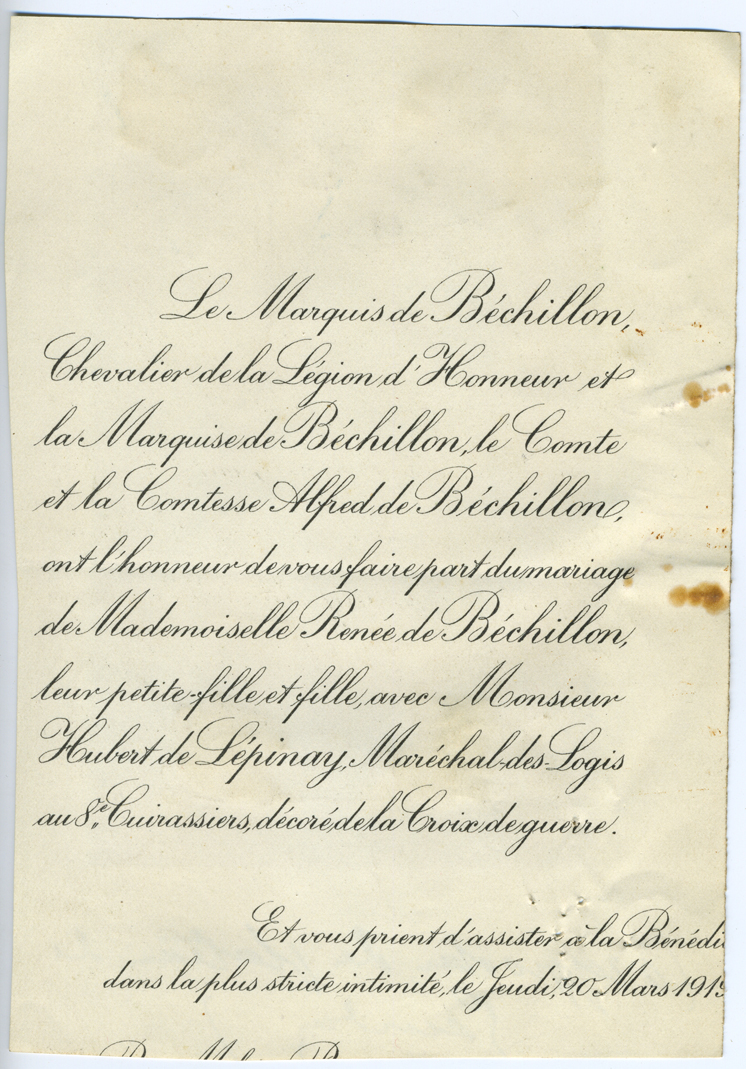 Le Marquis de Béchillon,
Chevalier de la Légion d'Honneur et
la Marquise de Béchillon, le Comte
et la Comtesse Alfred de Béchillon,
ont l'honneur de vous faire part du mariage
de Mademoiselle Renée de Béchillon,
leur petite-fille et fille, avec Monsieur
Hubert de Lépinay, Maréchal-des-Logis
au 8e Cuirassiers, décoré de la Croix de guerre.
Et vous prient d'assister à la Bénédi
dans la plus stricte intimité, le Jeudi, 20 Mars 1919